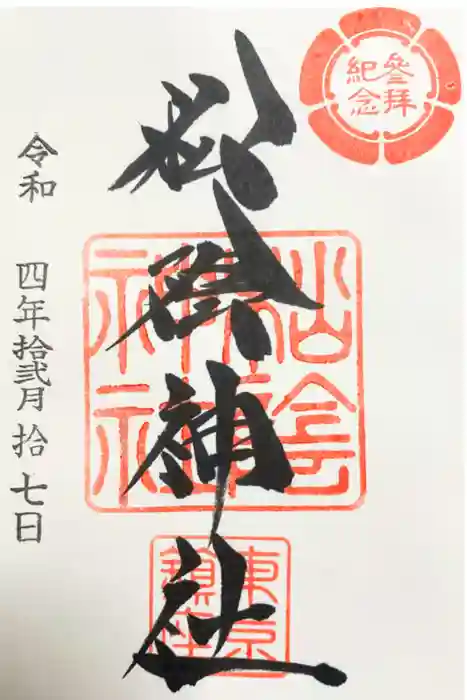 參拝
紀念
松陰神社
松陰
神社
東京
鎮座
令和 四年拾弐月拾七日